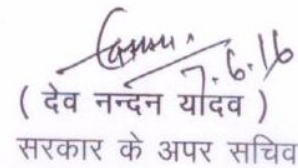 7.6.16
( देव नन्दन यादव )
सरकार के अपर सचिव